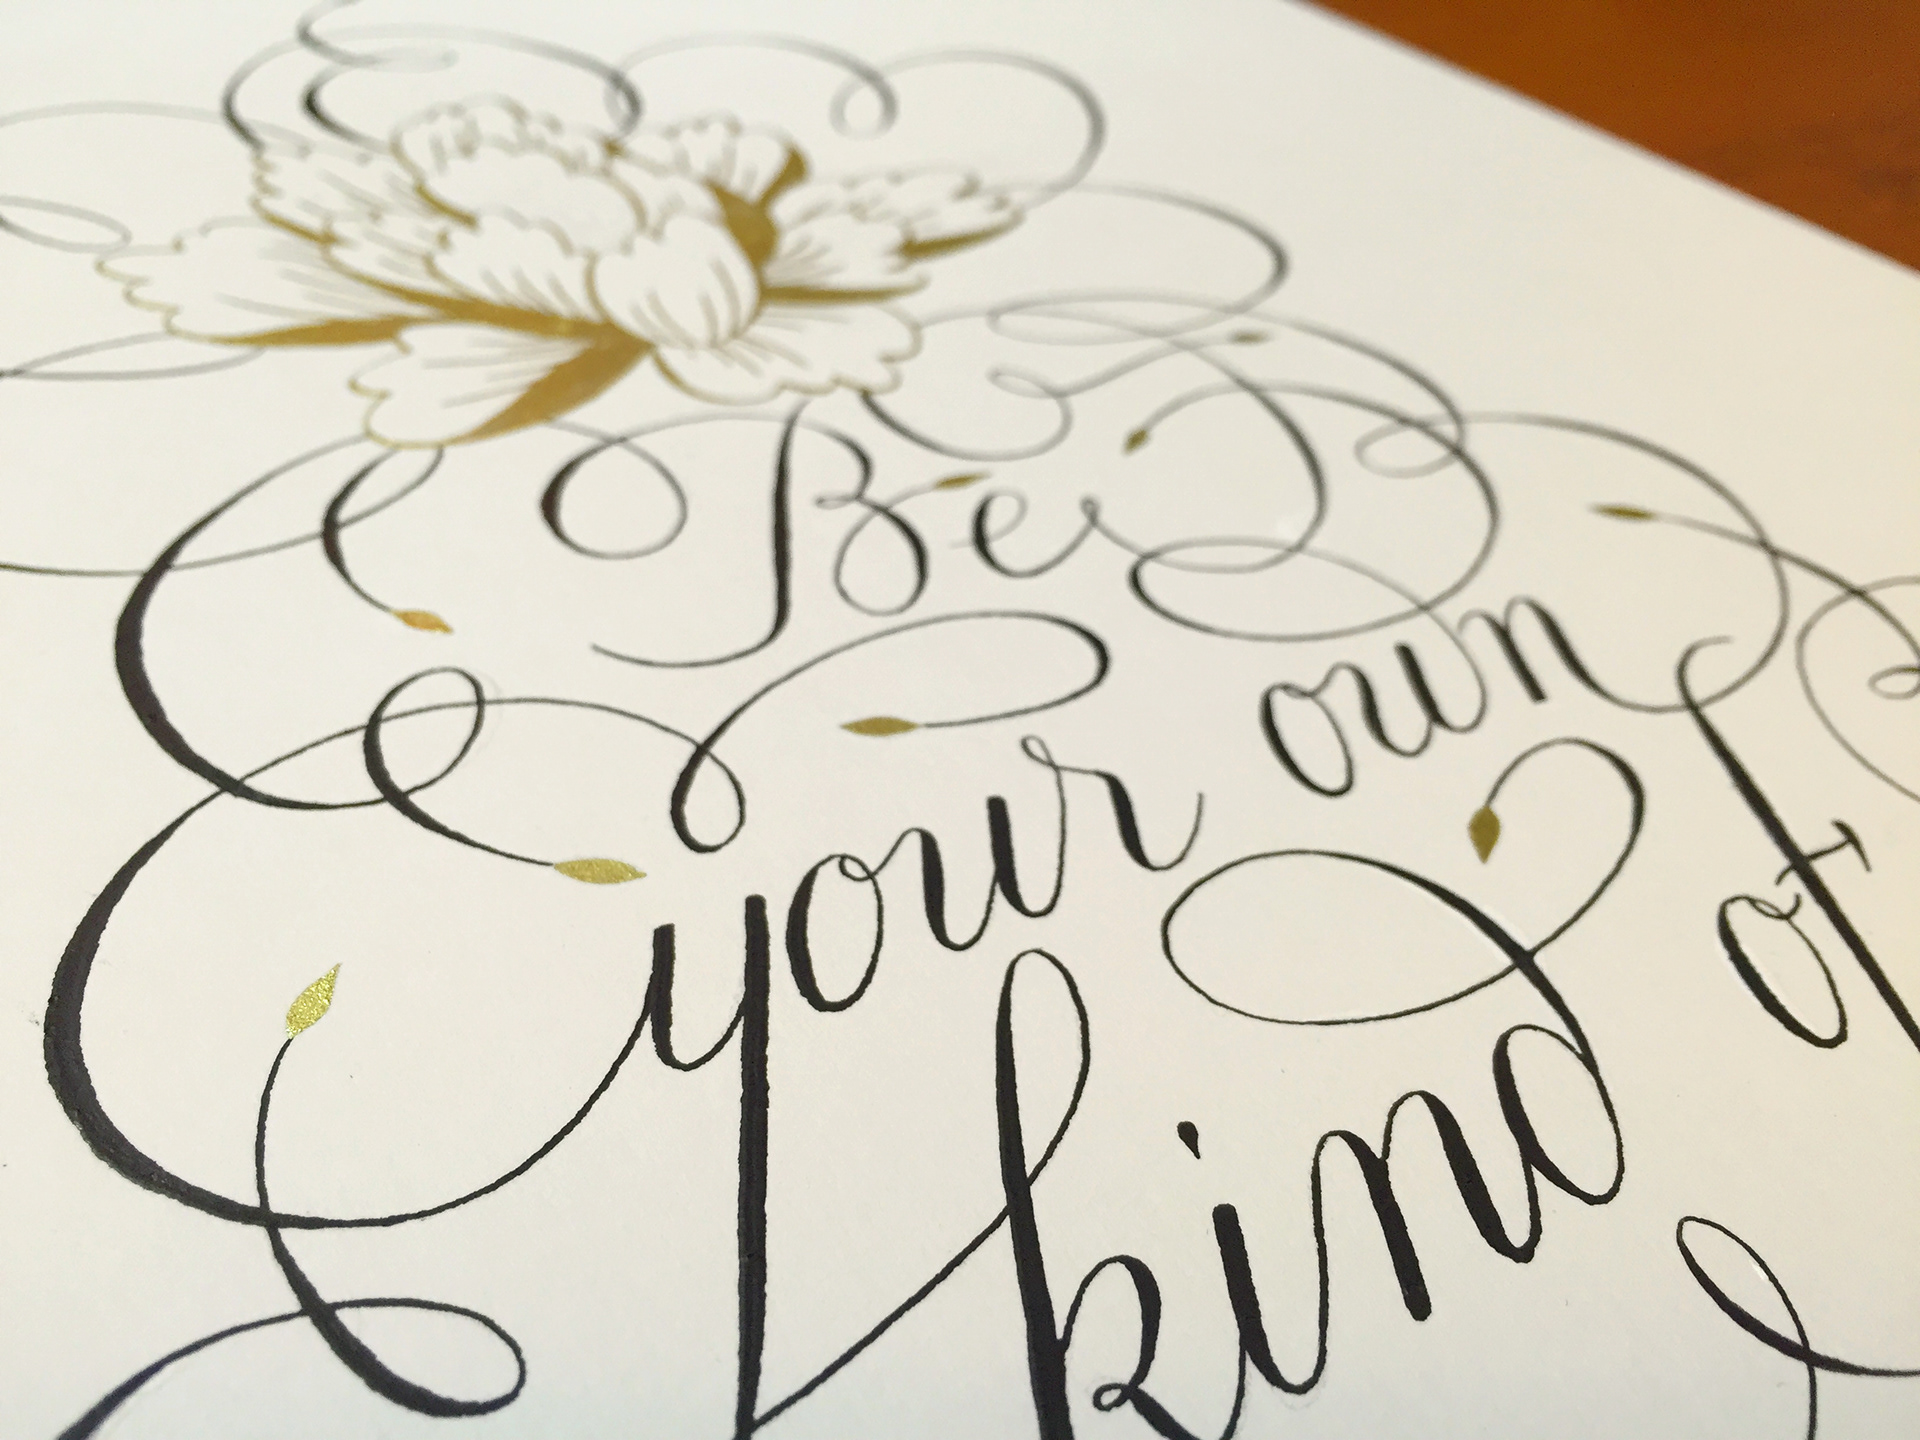 Be
your own
kind of